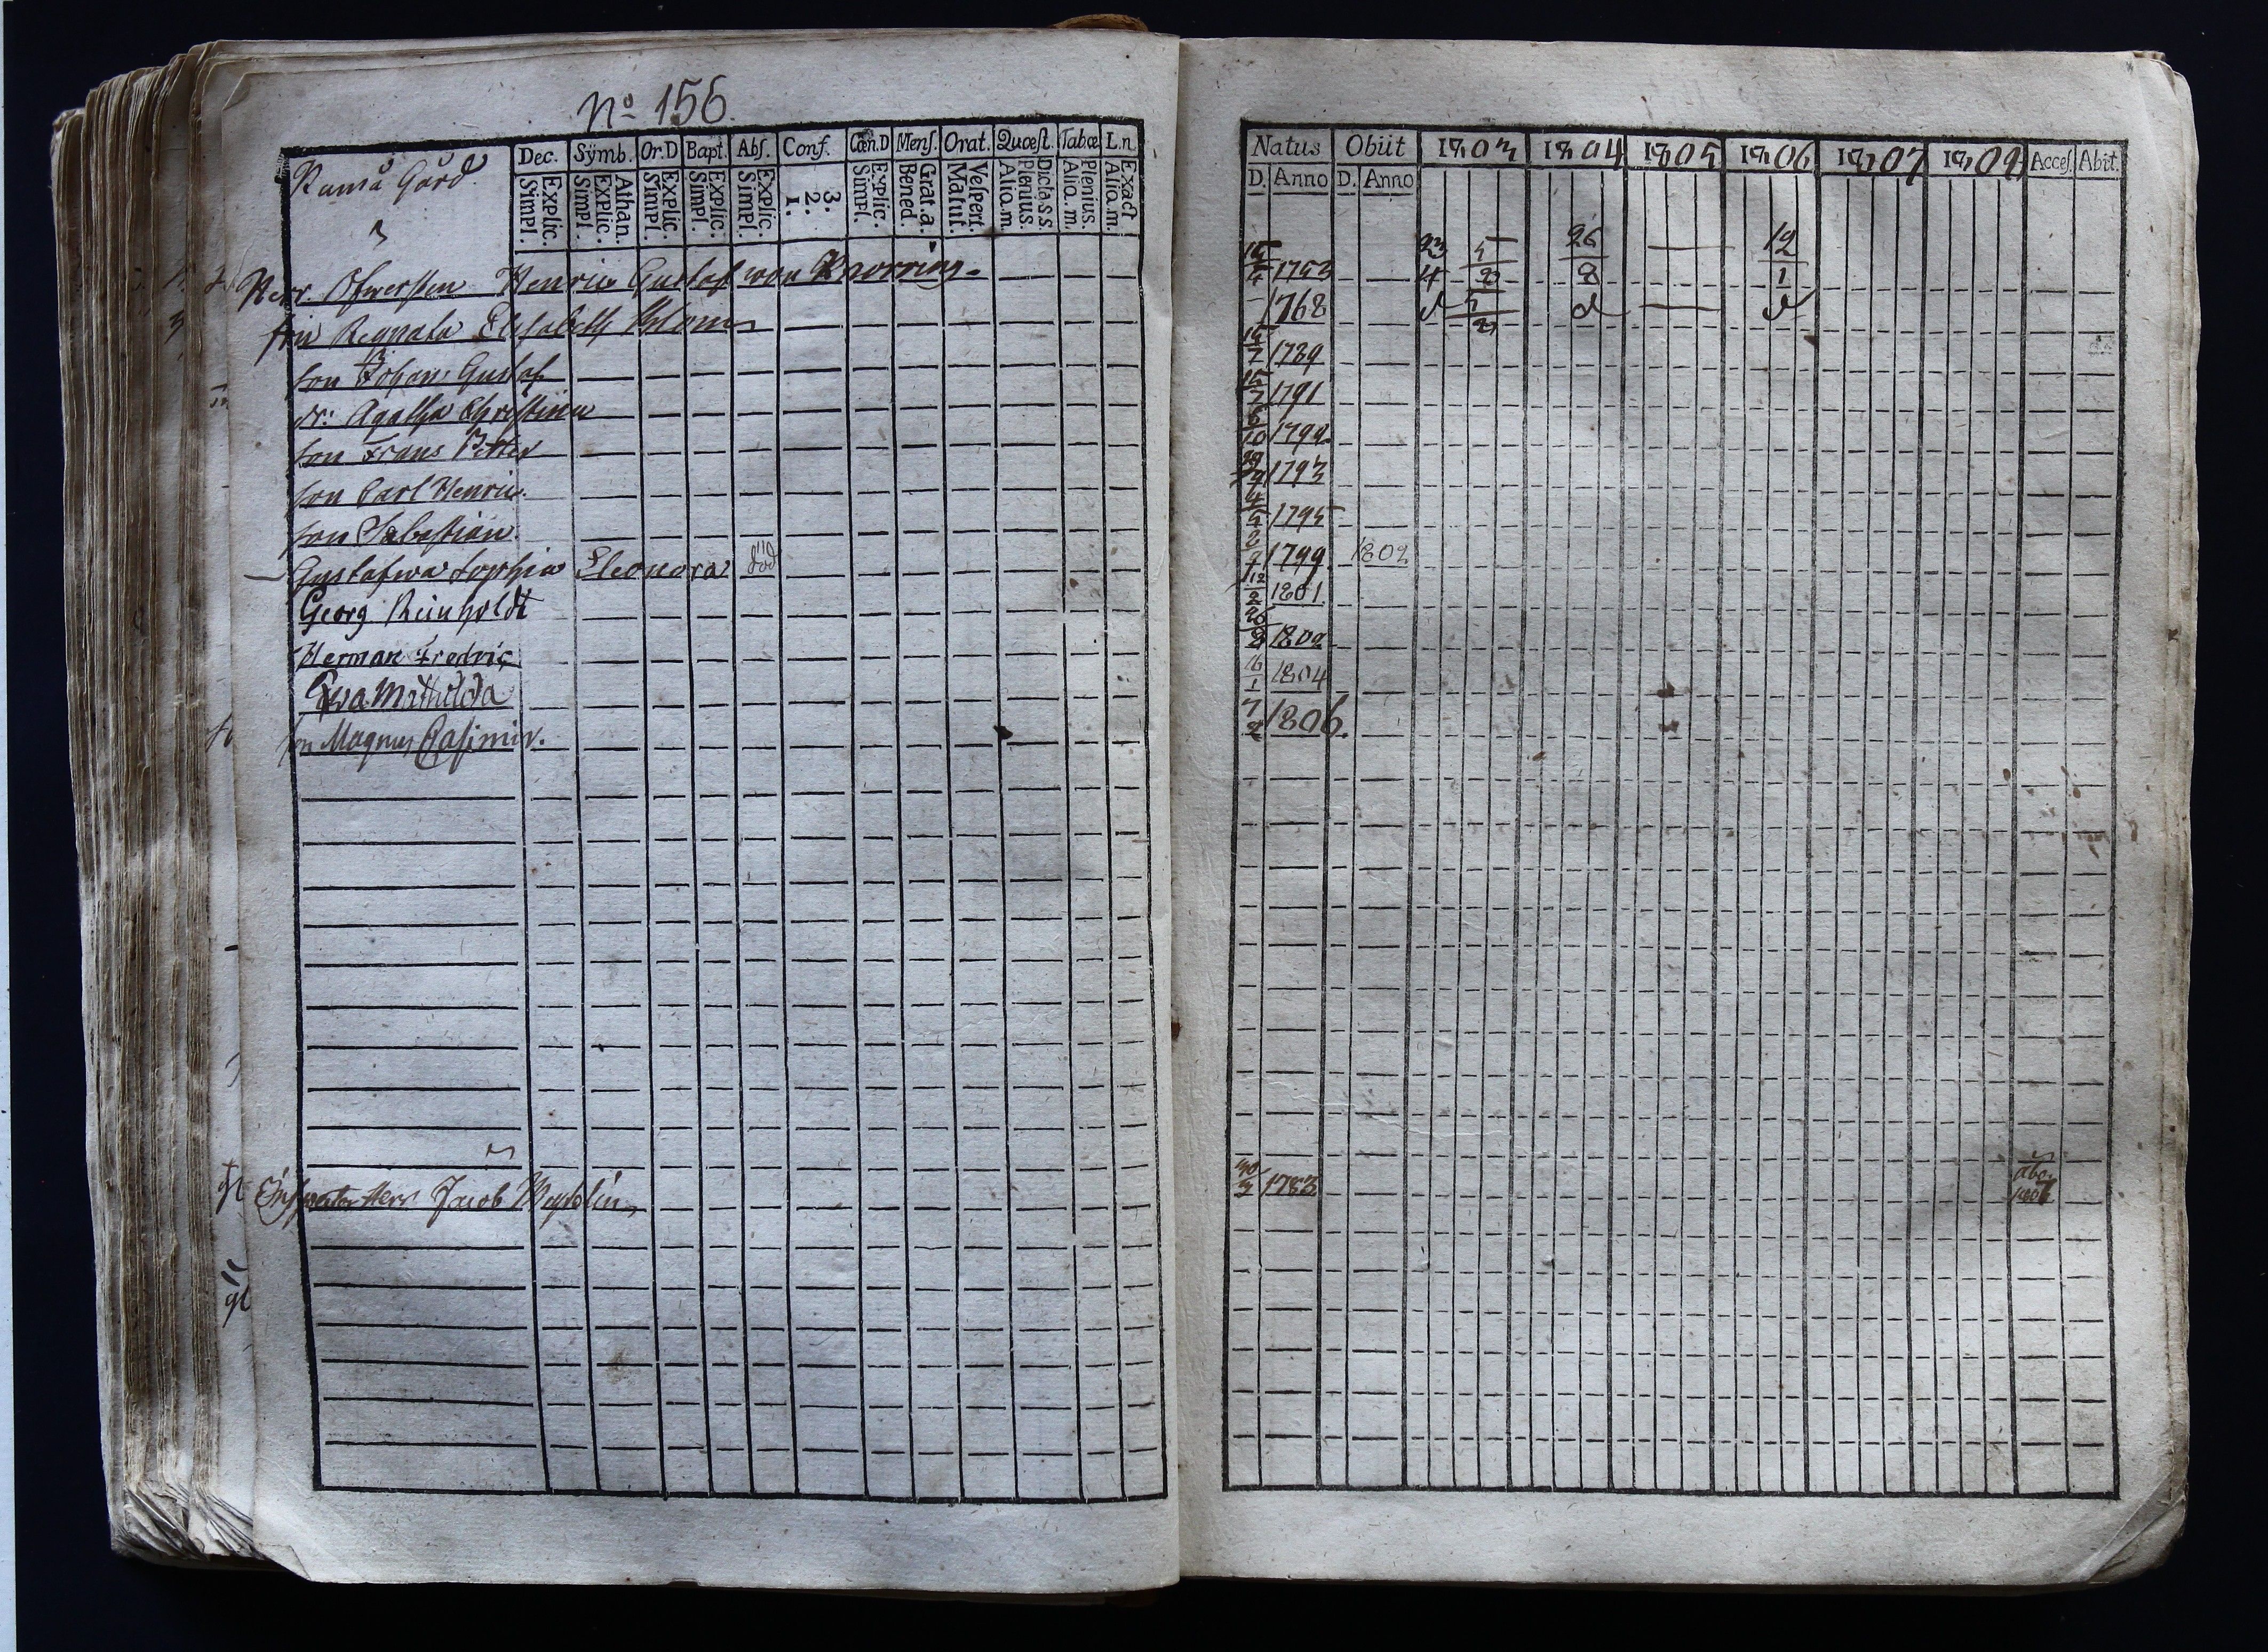 No 156.
Ramså Gård.
Dec. Symb. Or.D Bapt. Abs. Conf. Cœn.D Mens. Orat. Quæst. Tabæ L.n.
Explic. Simpl. Athan. Explic. Simpl. Explic. Simpl. Explic. Simpl. Explic. Simpl. 3. 2. 1. Explic. Simpl. Grat.a. Bened. Vespert. Matut. Dicta.s.s. Plenius. Aliq.m. Plenius. Aliq.m. Exact Aliq.m.
Herr Öfwersten Henric Gustaf von Knorring
fru Regnata Elisabeth Blom
son Johan Gustaf
dr: Agatha Christina
son Frans Petter
son Carl Henric
son Sebastian
Gustafwa Sophia Eleonora död
Georg Reinholdt
Herman Fredric
Ewa Mathilda
son Magnus Casimir.
Herr Jacob
Natus Obiit 1803 1804 1805 1806 1807 Acces. Abit.
D. Anno D. Anno
15/4 1753 23/4 26/8 12/1
1768
1789
1791
6/10 1792
1793
1795
2/9 1799 1802
12/2 1801
26/8 1802
16/1 1804
7/2 1806.
1783